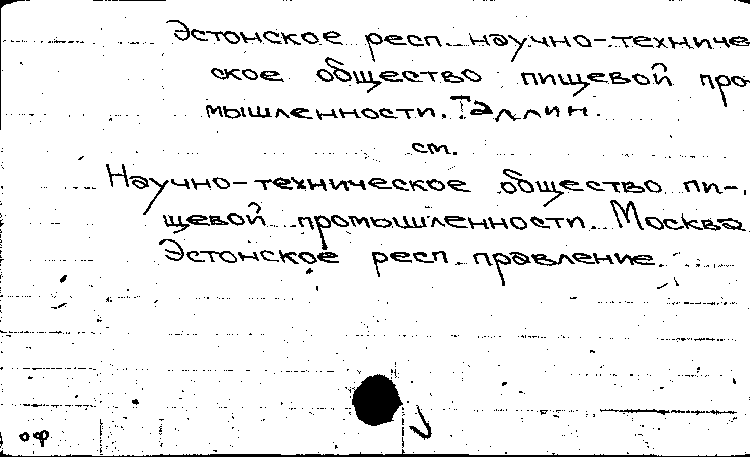 Эстонское респ. научно-техниче
ское общество пищевой про-
мышленности. Таллин.
см.
Научно-техническое общество пи-
щевой промышленности. Москва.
Эстонское респ. правление.
оф